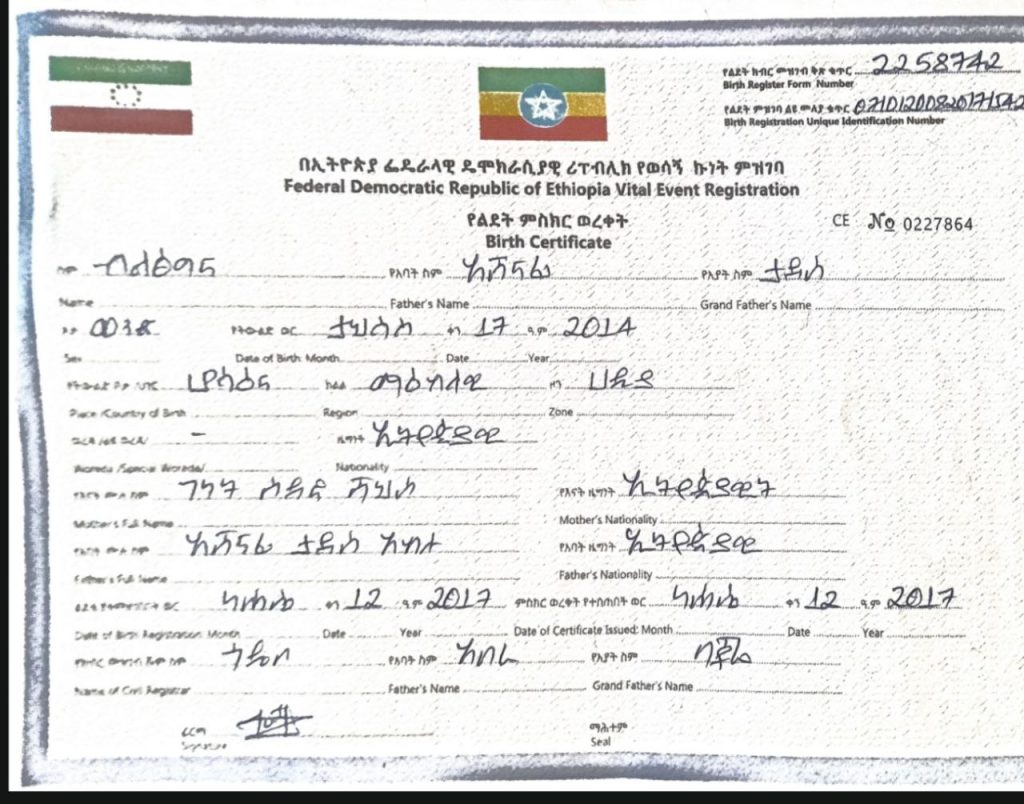 የልደት ክብር መዝገብ ቅጽ ቁጥር 2258742
Birth Register Form Number
የልደት ምዝገባ ልዩ መለያ ቁጥር 07101200820171542
Birth Registration Unique Identification Number
በኢትዮጵያ ፌዴራላዊ ዴሞክራሲያዊ ሪፐብሊክ የወሳኝ ኩነት ምዝገባ
Federal Democratic Republic of Ethiopia Vital Event Registration
የልደት ምስክር ወረቀት
Birth Certificate
CE № 0227864
ስም የአባት ስም አሸናፊ የአያት ስም ታደሰ
Name Father's Name Grand Father's Name
ፆታ ወንድ የትውልድ ወር ታህሳስ ቀን 17 ዓ.ም 2014
Sex Date of Birth: Month Date Year
የትውልድ ቦታ/ሀገር ሆሳዕና ክልል ማዕከላዊ ዞን ሀዲያ
Place /Country of Birth Region Zone
ወረዳ/ልዩ ወረዳ/ - ዜግነት ኢትዮጵያዊ
Woreda /Special Woreda/ Nationality
የእናት ሙሉ ስም ገነት የእናት ዜግነት ኢትዮጵያዊት
Mother's Full Name Mother's Nationality
የአባት ሙሉ ስም አሸናፊ ታደሰ የአባት ዜግነት ኢትዮጵያዊ
Father's Full Name Father's Nationality
ልደቱ የተመዘገበበት ወር ቀን 12 ዓ.ም 2017 ምስክር ወረቀት የተሰጠበት ወር ቀን 12 ዓ.ም 2017
Date of Birth Registration: Month Date Year Date of Certificate Issued: Month Date Year
የክብር መዝገብ ሹም ስም የአባት ስም አበራ የአያት ስም
Name of Civil Registrar Father's Name Grand Father's Name
ፊርማ ማሕተም
Signature Seal